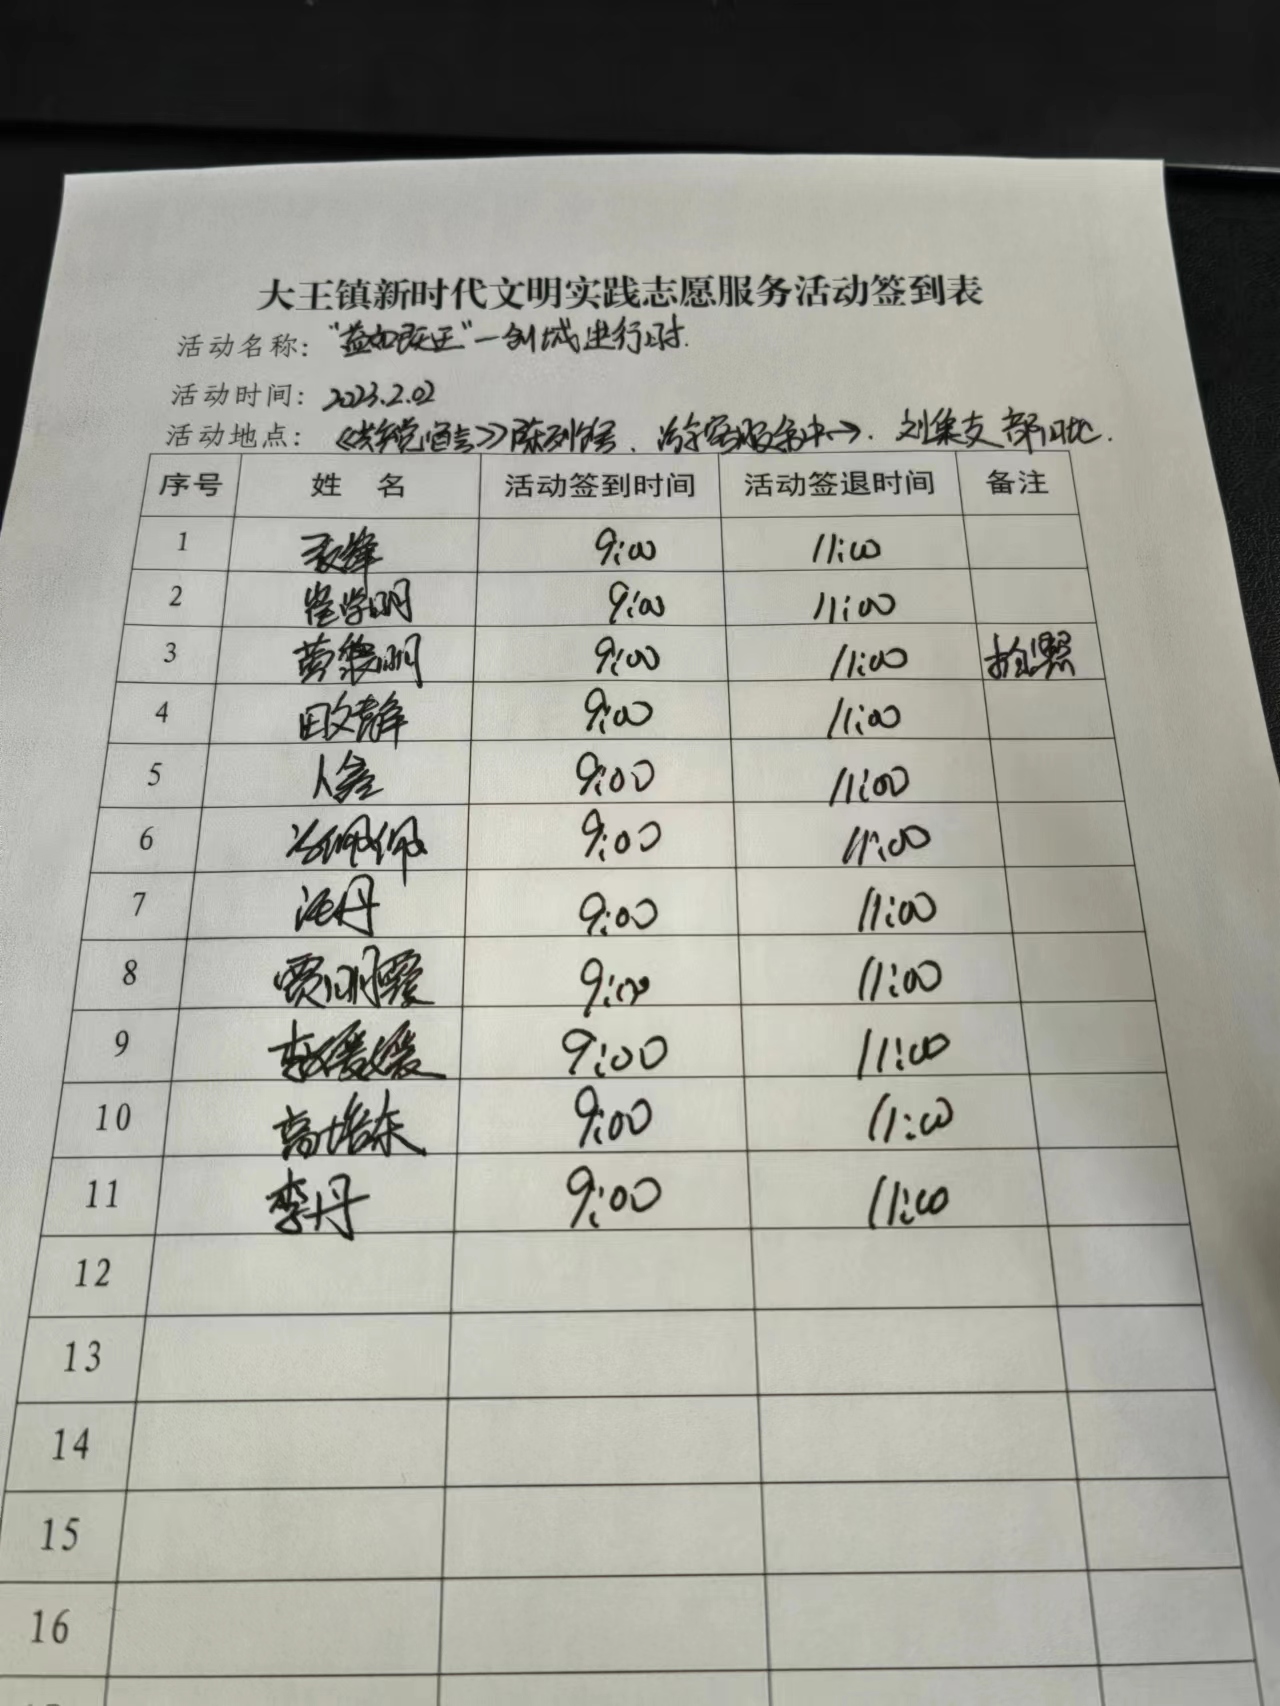 大王镇新时代文明实践志愿服务活动签到表
活动名称: "益如既王"一创城进行时.
活动时间: 2023.2.02
活动地点: 《共产党宣言》陈列馆、游客服务中心、刘集支部旧址.
序号 姓 名 活动签到时间 活动签退时间 备注
1 9:00 11:00
2 崔学明 9:00 11:00
3 明 9:00 11:00 拍照
4 田文静 9:00 11:00
5 9:00 11:00
6 佩佩 9:00 11:00
7 汪丹 9:00 11:00
8 贾明霞 9:00 11:00
9 李媛媛 9:00 11:00
10 高培东 9:00 11:00
11 李丹 9:00 11:00
12
13
14
15
16